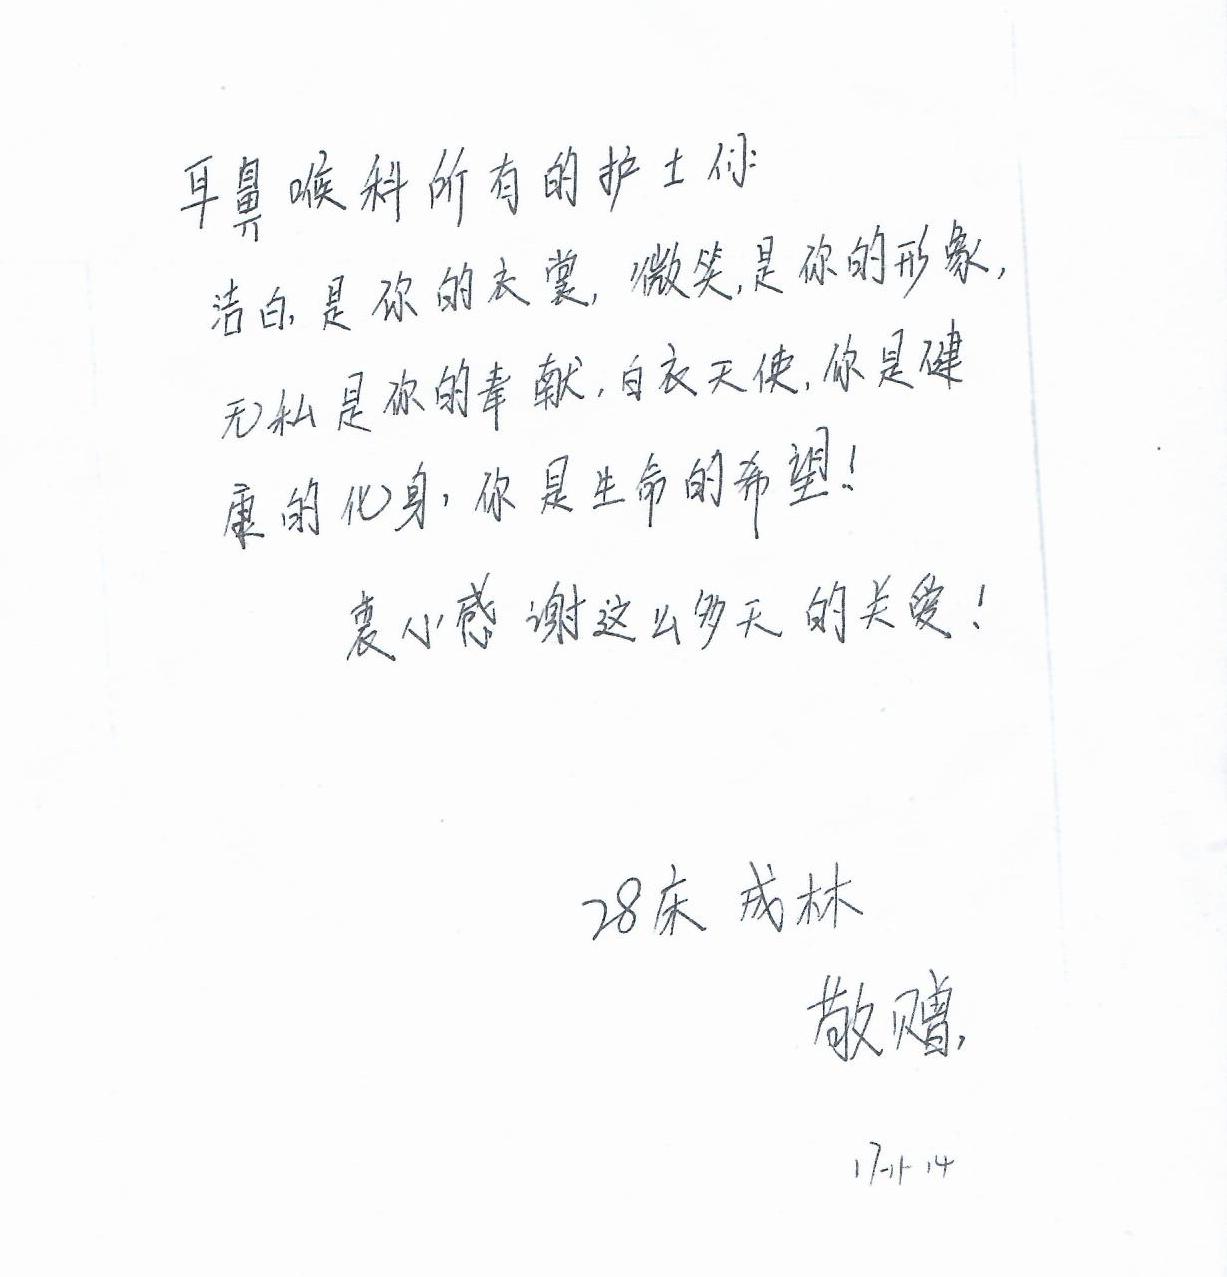 耳鼻喉科所有的护士们:
洁白,是你的衣裳,微笑,是你的形象,
无私是你的奉献,白衣天使,你是健
康的化身,你是生命的希望!
衷心感谢这么多天的关爱!
28床 成林
敬赠,
17-11-14